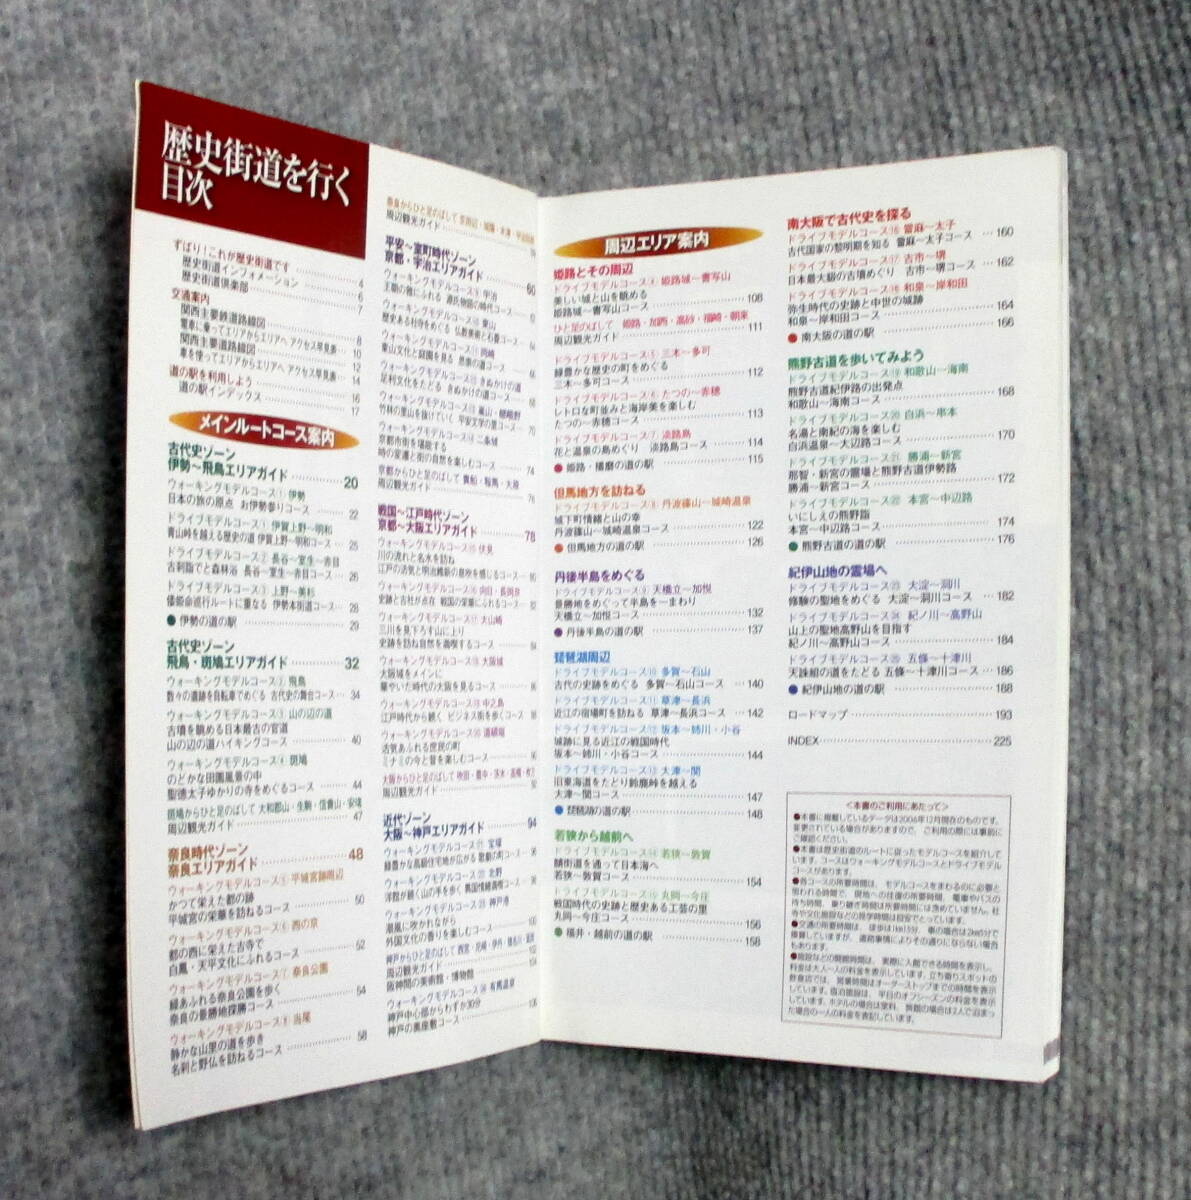 歴史街道を行く
目次
ずばり!これが歴史街道です 4
歴史街道インフォメーション 6
歴史街道倶楽部 7
交通案内
関西主要鉄道路線図 8
電車に乗ってエリアからエリアへ アクセス早見表 10
関西主要道路線図 12
車を使ってエリアからエリアへ アクセス早見表 14
道の駅を利用しよう 16
道の駅インデックス 17
メインルートコース案内
古代史ゾーン
伊勢〜飛鳥エリアガイド 20
ウォーキングモデルコース① 伊勢
日本の旅の原点 お伊勢参りコース 22
ドライブモデルコース① 伊賀上野〜明和
青山峠を越える歴史の道 伊賀上野〜明和コース 25
ドライブモデルコース② 長谷〜室生〜赤目
古刹詣でと森林浴 長谷〜室生〜赤目コース 26
ドライブモデルコース③ 上野〜美杉
倭姫命巡行ルートに重なる 伊勢本街道コース 28
●伊勢の道の駅 29
古代史ゾーン
飛鳥・斑鳩エリアガイド 32
ウォーキングモデルコース② 飛鳥
数々の遺跡を自転車でめぐる 古代史の舞台コース 34
ウォーキングモデルコース③ 山の辺の道
古墳を眺める日本最古の官道
山の辺の道ハイキングコース 40
ウォーキングモデルコース④ 斑鳩
のどかな田園風景の中
聖徳太子ゆかりの寺をめぐるコース 44
斑鳩からひと足のばして 大和郡山・生駒・信貴山・安堵
周辺観光ガイド 47
奈良時代ゾーン
奈良エリアガイド 48
ウォーキングモデルコース⑤ 平城宮跡周辺
かつて栄えた都の跡
平城宮の栄華を訪ねるコース 50
ウォーキングモデルコース⑥ 西の京
都の西に栄えた古寺で
白鳳・天平文化にふれるコース 52
ウォーキングモデルコース⑦ 奈良公園
緑あふれる奈良公園を歩く
奈良の景勝地探勝コース 54
ウォーキングモデルコース⑧ 当尾
静かな山里の道を歩き
名刹と野仏を訪ねるコース 58
奈良からひと足のばして
周辺観光ガイド
平安〜室町時代ゾーン
京都・宇治エリアガイド 60
ウォーキングモデルコース⑨ 宇治
王朝の雅にふれる 源氏物語の時代コース
ウォーキングモデルコース⑩ 東山
歴史ある社寺をめぐる 仏教美術と石畳コース
ウォーキングモデルコース⑪ 岡崎
東山文化と庭園を見る
ウォーキングモデルコース⑫ きぬかけの道
足利文化をたどる きぬかけの道コース 68
ウォーキングモデルコース⑬ 嵐山・嵯峨野
竹林の里山を抜けていく 平安文学の里コース 70
ウォーキングモデルコース⑭ 二条城
京都市街を堪能する
時の変遷と街の自然を楽しむコース 74
京都からひと足のばして 貴船・鞍馬・大原
周辺観光ガイド 76
戦国〜江戸時代ゾーン
京都〜大阪エリアガイド 78
ウォーキングモデルコース⑮ 伏見
川の流れと名水を訪ね
江戸の活気と明治維新の息吹を感じるコース 80
ウォーキングモデルコース⑯ 向日・長岡京
史跡と古社が点在 戦国の栄華にふれるコース 82
ウォーキングモデルコース⑰ 大山崎
三川を見下ろす山に上り
史跡を訪ね自然を満喫するコース 84
ウォーキングモデルコース⑱ 大阪城
大阪城をメインに
華やいだ時代の大阪を見るコース 86
ウォーキングモデルコース⑲ 中之島
江戸時代から続く ビジネス街を歩くコース 88
ウォーキングモデルコース⑳ 道頓堀
活気あふれる庶民の町
ミナミの今と昔を楽しむコース 90
大阪からひと足のばして 吹田・豊中・茨木・高槻・枚方
周辺観光ガイド 92
近代ゾーン
大阪〜神戸エリアガイド 94
ウォーキングモデルコース㉑ 宝塚
緑豊かな高級住宅地が広がる 歌劇の町コース 96
ウォーキングモデルコース㉒ 北野
洋館が続く山の手を歩く 異国情緒満喫コース 98
ウォーキングモデルコース㉓ 神戸港
潮風に吹かれながら
外国文化の香りを楽しむコース 100
神戸からひと足のばして
周辺観光ガイド 102
阪神間の美術館・博物館 104
ウォーキングモデルコース㉔ 有馬温泉
神戸中心部からわずか30分
神戸の奥座敷コース 106
周辺エリア案内
姫路とその周辺
ドライブモデルコース④ 姫路城〜書写山
美しい城と山を眺める
姫路城〜書写山コース 108
ひと足のばして 姫路・加西・高砂・福崎・朝来
周辺観光ガイド 111
ドライブモデルコース⑤ 三木〜多可
緑豊かな歴史の町をめぐる
三木〜多可コース 112
ドライブモデルコース⑥ たつの〜赤穂
レトロな町並みと海岸美を楽しむ
たつの〜赤穂コース 113
ドライブモデルコース⑦ 淡路島
花と温泉の島めぐり 淡路島コース 114
●姫路・播磨の道の駅 115
但馬地方を訪ねる
ドライブモデルコース⑧ 丹波篠山〜城崎温泉
城下町情緒と山の幸
丹波篠山〜城崎温泉コース 122
●但馬地方の道の駅 126
丹後半島をめぐる
ドライブモデルコース⑨ 天橋立〜加悦
景勝地をめぐって半島を一まわり
天橋立〜加悦コース 132
●丹後半島の道の駅 137
琵琶湖周辺
ドライブモデルコース⑩ 多賀〜石山
古代の史跡をめぐる 多賀〜石山コース 140
ドライブモデルコース⑪ 草津〜長浜
近江の宿場町を訪ねる 草津〜長浜コース 142
ドライブモデルコース⑫ 坂本〜姉川・小谷
城跡に見る近江の戦国時代
坂本〜姉川・小谷コース 144
ドライブモデルコース⑬ 大津〜関
旧東海道をたどり鈴鹿峠を越える
大津〜関コース 147
●琵琶湖の道の駅 148
若狭から越前へ
ドライブモデルコース⑭ 若狭〜敦賀
鯖街道を通って日本海へ
若狭〜敦賀コース 154
ドライブモデルコース⑮ 丸岡〜今庄
戦国時代の史跡と歴史ある工芸の里
丸岡〜今庄コース 156
●福井・越前の道の駅 158
南大阪で古代史を探る
ドライブモデルコース⑯ 當麻〜太子
古代国家の黎明期を知る 當麻〜太子コース 160
ドライブモデルコース⑰ 古市〜堺
日本最大級の古墳めぐり 古市〜堺コース 162
ドライブモデルコース⑱ 和泉〜岸和田
弥生時代の史跡と中世の城跡
和泉〜岸和田コース 164
●南大阪の道の駅 166
熊野古道を歩いてみよう
ドライブモデルコース⑲ 和歌山〜海南
熊野古道紀伊路の出発点
和歌山〜海南コース 168
ドライブモデルコース⑳ 白浜〜串本
名湯と南紀の海を楽しむ
白浜温泉〜大辺路コース 170
ドライブモデルコース㉑ 勝浦〜新宮
那智・新宮の霊場と熊野古道伊勢路
勝浦〜新宮コース 172
ドライブモデルコース㉒ 本宮〜中辺路
いにしえの熊野詣
本宮〜中辺路コース 174
●熊野古道の道の駅 176
紀伊山地の霊場へ
ドライブモデルコース㉓ 大淀〜洞川
修験の聖地をめぐる 大淀〜洞川コース 182
ドライブモデルコース㉔ 紀ノ川〜高野山
山上の聖地高野山を目指す
紀ノ川〜高野山コース 184
ドライブモデルコース㉕ 五條〜十津川
天誅組の道をたどる 五條〜十津川コース 186
●紀伊山地の道の駅 188
ロードマップ 193
INDEX 225
<本書のご利用にあたって>
●本書に掲載しているデータは2006年12月現在のものです。
変更されている場合がありますので、ご利用の際には事前に
ご確認ください。
●本書は歴史街道のルートに従ったモデルコースを紹介して
います。コースはウォーキングモデルコースとドライブモデル
コースがあります。
●各コースの所要時間は、モデルコースをまわるのに必要と
思われる時間で、現地への往復の所要時間、電車やバスの
待ち時間、乗り継ぎ時間は所要時間には含めていません。社
寺や文化施設などの見学時間は目安でとっています。
●交通の所要時間は、徒歩は1km15分、車の場合は2km5分で
換算していますが、道路事情によりその通りにならない場合
もあります。
●施設などの開館時間は、実際に入館できる時間を表示し、
料金は大人一人の料金を表示しています。立ち寄りスポットの
飲食店では、営業時間はオーダーストップまでの時間を表示
しています。宿泊施設は、平日のオフシーズンの料金を表示
しています。ホテルの場合は室料、旅館の場合は2人で泊まっ
た場合の一人の料金を表記しています。